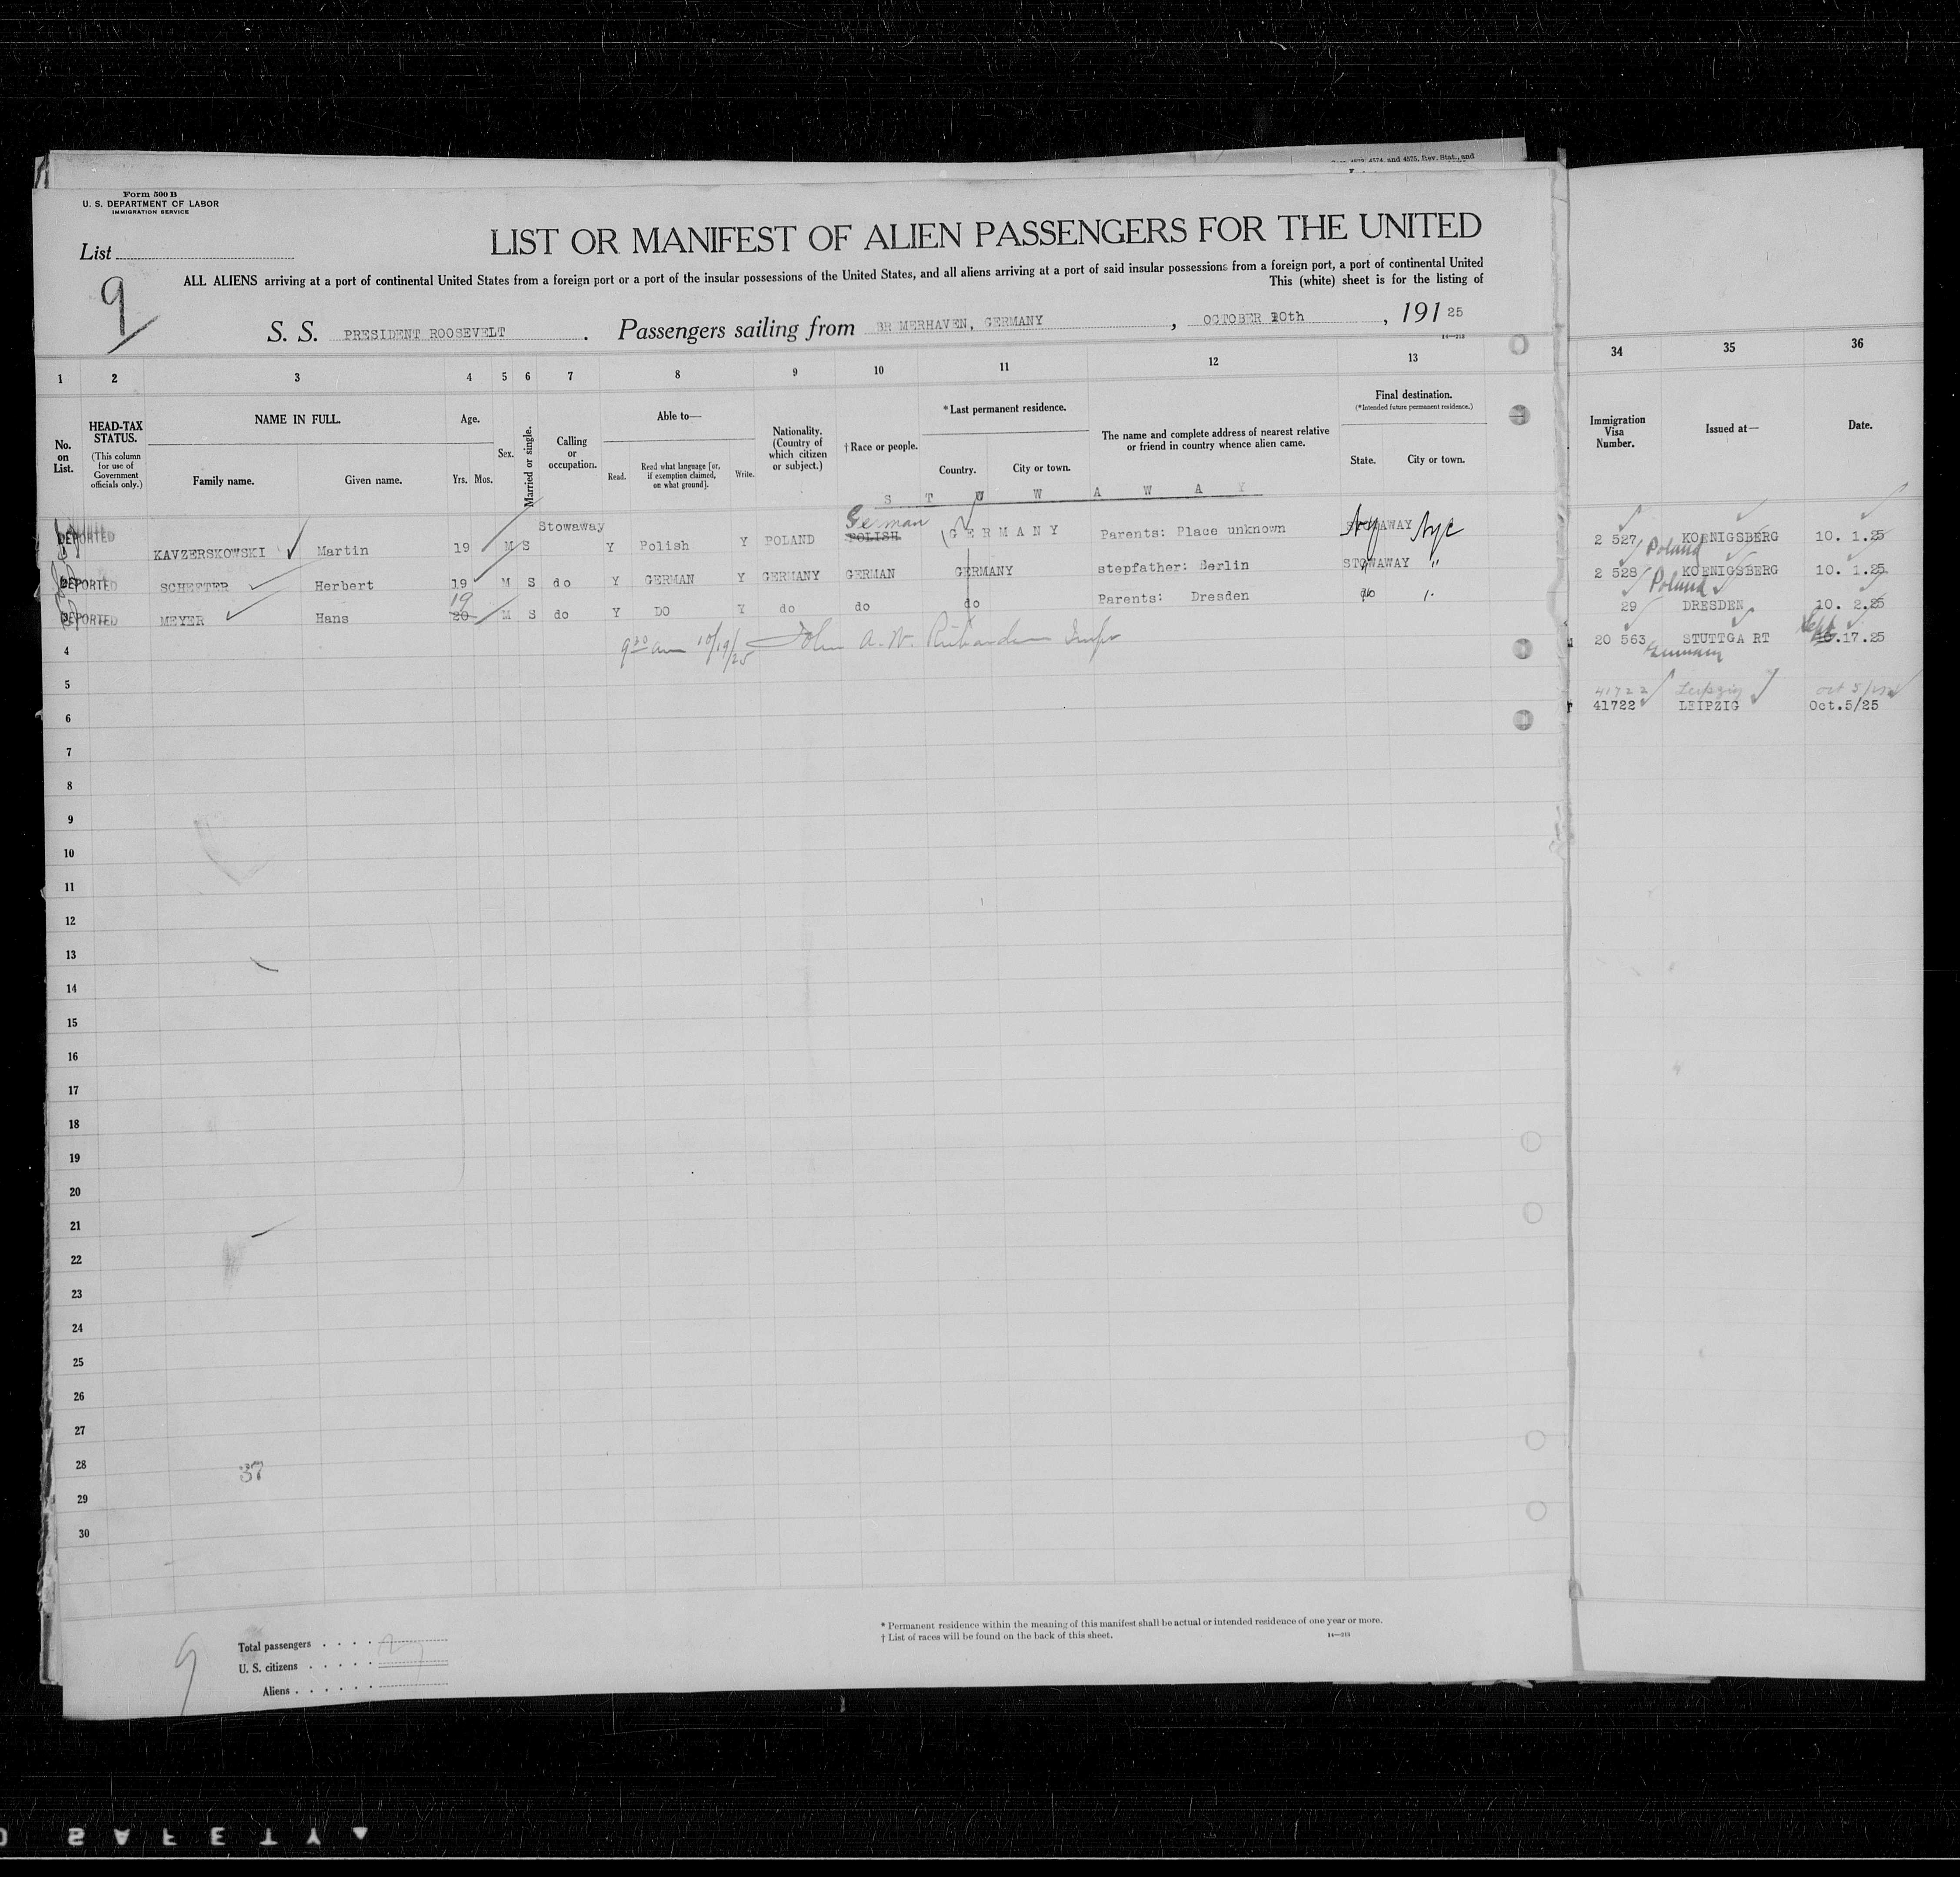 Secs. 4573, 4574, and 4575, Rev. Stat., and
Form 500 B
U. S. DEPARTMENT OF LABOR
IMMIGRATION SERVICE
List
9
LIST OR MANIFEST OF ALIEN PASSENGERS FOR THE UNITED
ALL ALIENS arriving at a port of continental United States from a foreign port or a port of the insular possessions of the United States, and all aliens arriving at a port of said insular possessions from a foreign port, a port of continental United
This (white) sheet is for the listing of
S. S. PRESIDENT ROOSEVELT . Passengers sailing from BR MERHAVEN, GERMANY , OCTOBER 10th , 191 25
14—213
1 2 3 4 5 6 7 8 9 10 11 12 13 34 35 36
No. on List.
HEAD-TAX STATUS.
(This column for use of Government officials only.)
NAME IN FULL.
Family name. Given name.
Age.
Yrs. Mos.
Sex.
Married or single.
Calling or occupation.
Able to—
Read. Read what language [or, if exemption claimed, on what ground]. Write.
Nationality. (Country of which citizen or subject.)
† Race or people.
* Last permanent residence.
Country. City or town.
The name and complete address of nearest relative or friend in country whence alien came.
Final destination.
(*Intended future permanent residence.)
State. City or town.
Immigration Visa Number.
Issued at—
Date.
S T O W A W A Y
DEPORTED KAVZERSKOWSKI Martin 19 M S Stowaway Y Polish Y POLAND POLISH German GERMANY Parents: Place unknown STOWAWAY NY NYC 2 527 KOENIGSBERG Poland 10. 1.25
DEPORTED SCHEFTER Herbert 19 M S do Y GERMAN Y GERMANY GERMAN GERMANY stepfather: Berlin STOWAWAY " 2 528 KOENIGSBERG Poland 10. 1.25
DEPORTED MEYER Hans 20 19 M S do Y DO Y do do do Parents: Dresden do " 29 DRESDEN 10. 2.25
4 9 30 am 10/19/25 John A. W. Richardson Inspr 20 563 STUTTGA RT Germany Sept 10.17.25
5 41722 Leipzig Oct 5/25
6 41722 LEIPZIG Oct.5/25
7
8
9
10
11
12
13
14
15
16
17
18
19
20
21
22
23
24
25
26
27
28 37
29
30
* Permanent residence within the meaning of this manifest shall be actual or intended residence of one year or more.
† List of races will be found on the back of this sheet.
14—213
9
Total passengers
U. S. citizens
Aliens
SAFETY